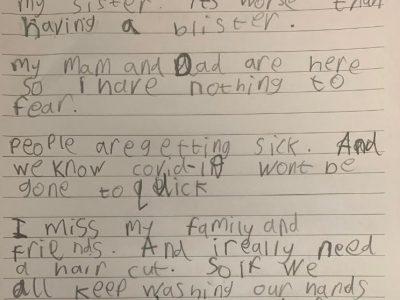 my sister. its worse than
having a blister.
my mam and Dad are here
so i have nothing to
fear.
people are getting sick. And
we know covid-19 wont be
gone to quick
I miss my family and
friends. And i really need
a hair cut. So if we
all keep washing our hands